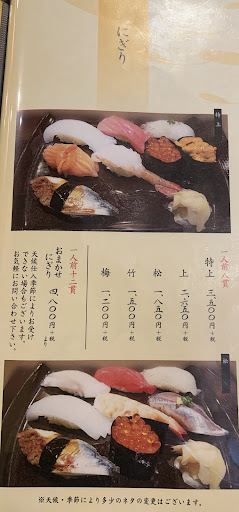 にぎり
特上
一人前八貫
特上 三、五〇〇円+税
上 二、六五〇円+税
松 一、八五〇円+税
竹 一、五〇〇円+税
梅 一、二〇〇円+税
一人前十二貫
おまかせ
にぎり 四、八〇〇円+税より
天候仕入季節によりお受け
できない場合もございます。
お気軽にお問い合わせ下さい。
松
※天候・季節により多少のネタの変更はございます。